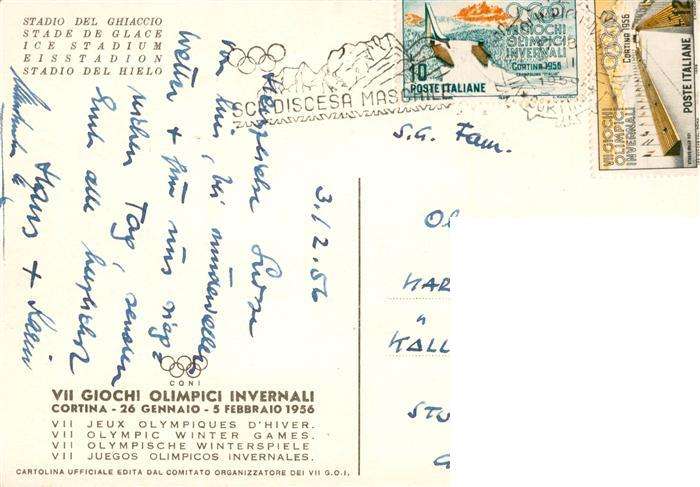 STADIO DEL GHIACCIO
STADE DE GLACE
ICE STADIUM
EISSTADION
STADIO DEL HIELO
SCI DISCESA MASCHILE
VII GIOCHI
OLIMPICI
INVERNALI
CORTINA 1956
10
POSTE ITALIANE
CORTINA 1956
12
POSTE ITALIANE
VII GIOCHI
OLIMPICI
INVERNALI
3./2.56
Herzliche Grüße
von hier, bei wundervollem
Wetter + für uns
Tag, senden
Euch alle herzlichst
Hans + Karin
S.G. Fam.
OL
HAR
KALL
ST
G
CONI
VII GIOCHI OLIMPICI INVERNALI
CORTINA - 26 GENNAIO - 5 FEBBRAIO 1956
VII JEUX OLYMPIQUES D'HIVER.
VII OLYMPIC WINTER GAMES.
VII OLYMPISCHE WINTERSPIELE
VII JUEGOS OLIMPICOS INVERNALES.
CARTOLINA UFFICIALE EDITA DAL COMITATO ORGANIZZATORE DEI VII G.O.I.